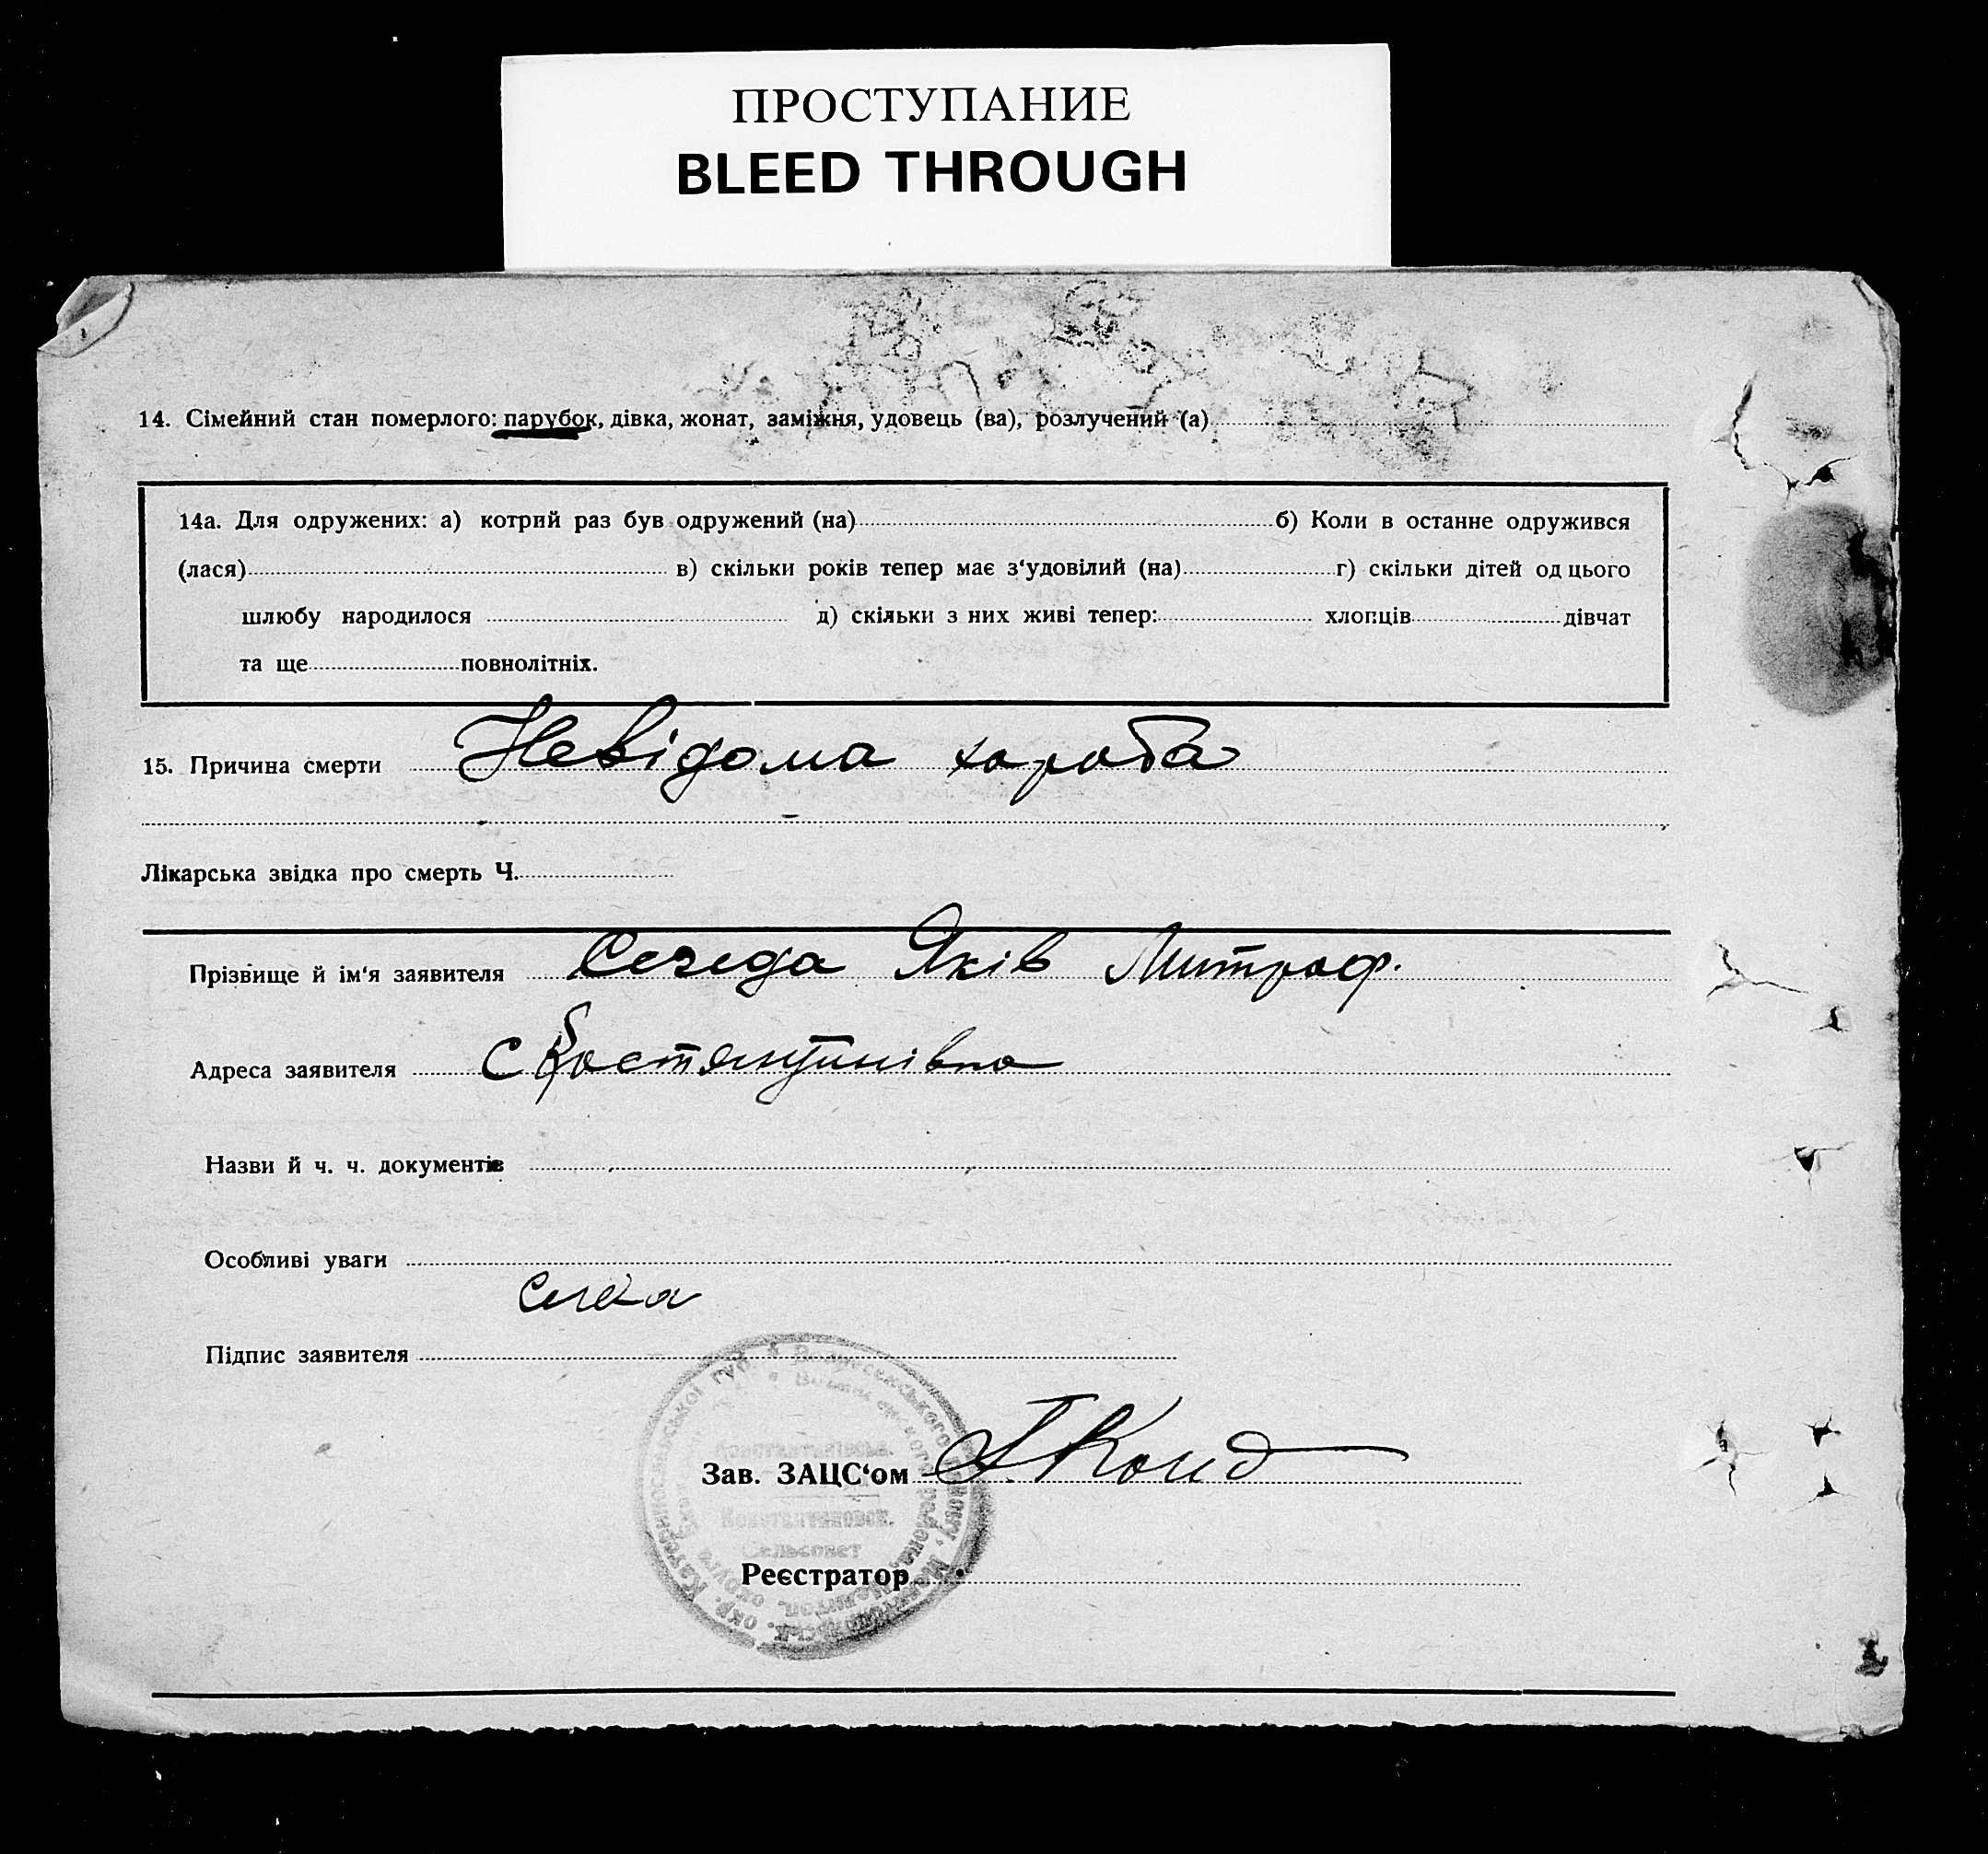 ПРОСТУПАНИЕ
BLEED THROUGH
14. Сімейний стан померлого: парубок, дівка, жонат, заміжня, удовець (ва), розлучений (а)
14а. Для одружених: а) котрий раз був одружений (на) б) Коли в останне одружився
(лася) в) скільки років тепер має з‘удовілий (на) г) скільки дітей од цього
шлюбу народилося д) скільки з них живі тепер: хлопців дівчат
та ще повнолітніх.
15. Причина смерти Невідома хороба
Лікарська звідка про смерть Ч.
Прізвище й ім‘я заявителя Середа Яків Митроф.
Адреса заявителя с Костянтинівка
Назви й ч. ч. документів
Особливі уваги
Підпис заявителя
Зав. ЗАЦС‘ом
Константиновск.
Сельсовет
Реєстратор